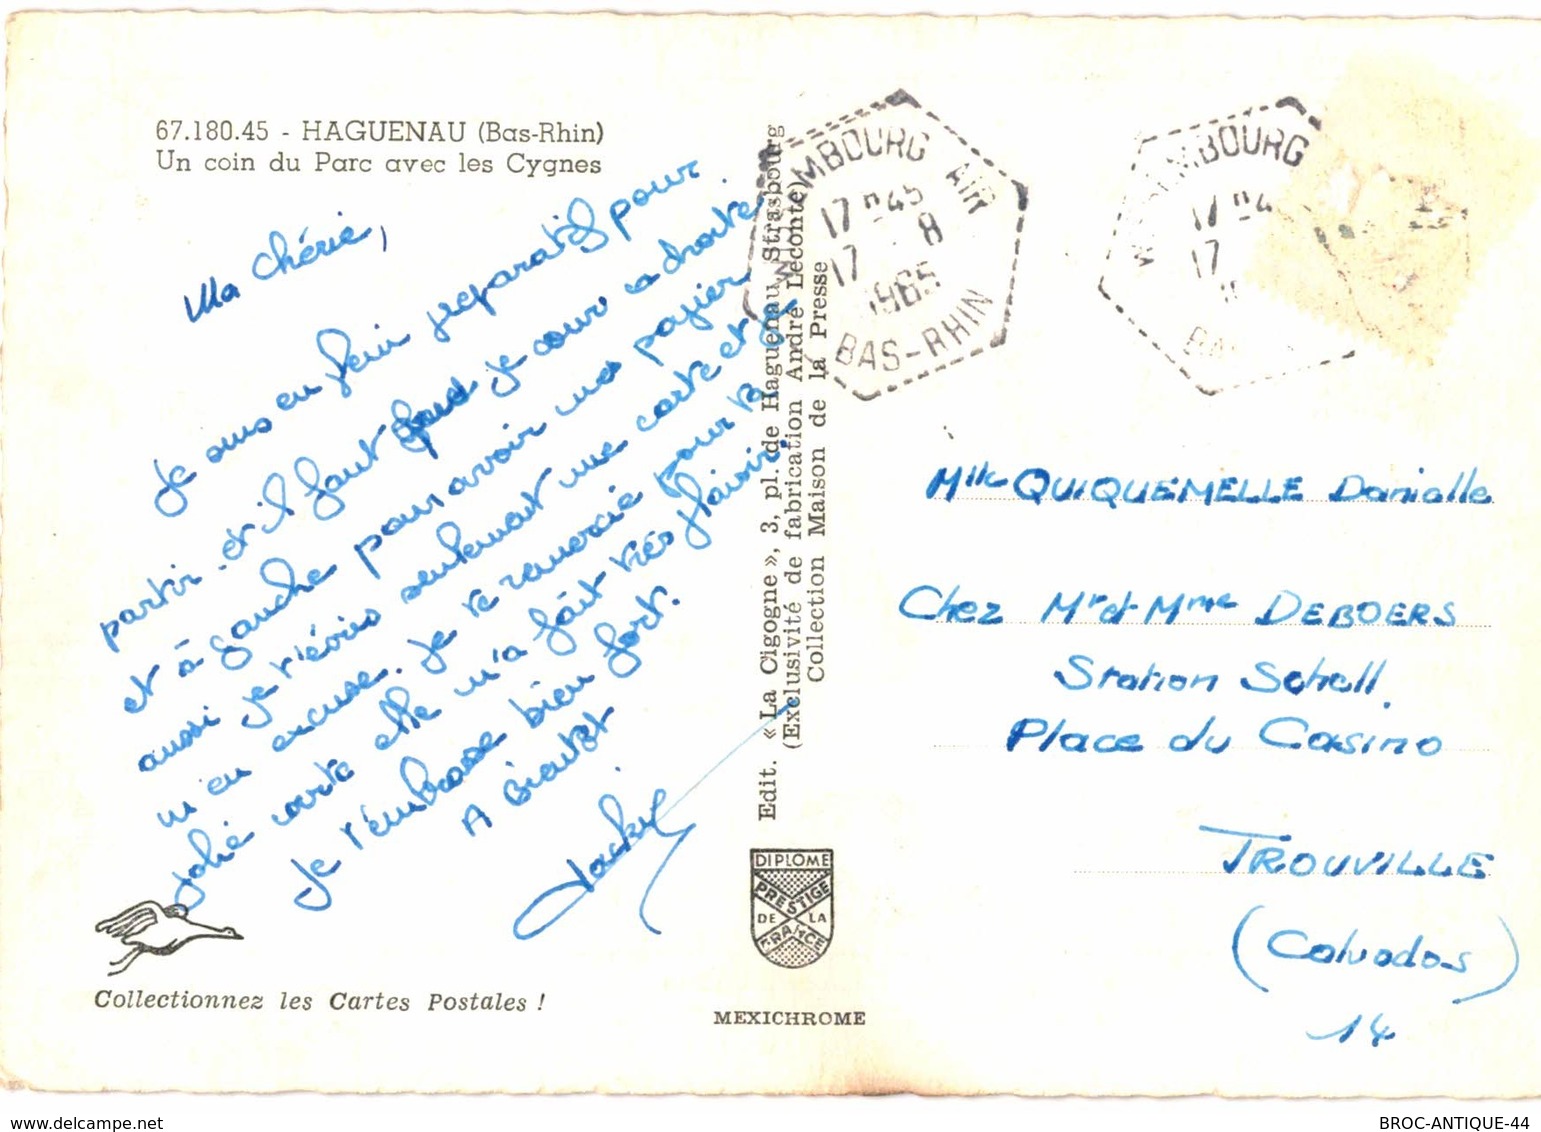 67.180.45 - HAGUENAU (Bas-Rhin)
Un coin du Parc avec les Cygnes
Ma Chérie,
Je suis en plein préparatifs pour
partir et il faut que je cour à droite
et à gauche pour avoir mes papier
aussi je t'écris seulement une carte et je
m'en excuse. Je te remercie pour ta
jolie carte elle m'a fait très plaisir.
Je t'embrasse bien fort.
A Bientôt
Jacky
Collectionnez les Cartes Postales !
Edit. «La Cigogne», 3, pl. de Haguenau, Strasbourg
(Exclusivité de fabrication André Leconte)
Collection Maison de la Presse
DIPLOME
PRESTIGE
DE LA
FRANCE
MEXICHROME
MBOURG AIR
17 H 45
17 8
1965
BAS-RHIN
MBOURG
17 H 4
17
BA
Mlle QUIQUEMELLE Danielle
Chez Mr et Mme DEBOERS
Station Schell
Place du Casino
TROUVILLE
(Calvados)
14
BROC-ANTIQUE-44